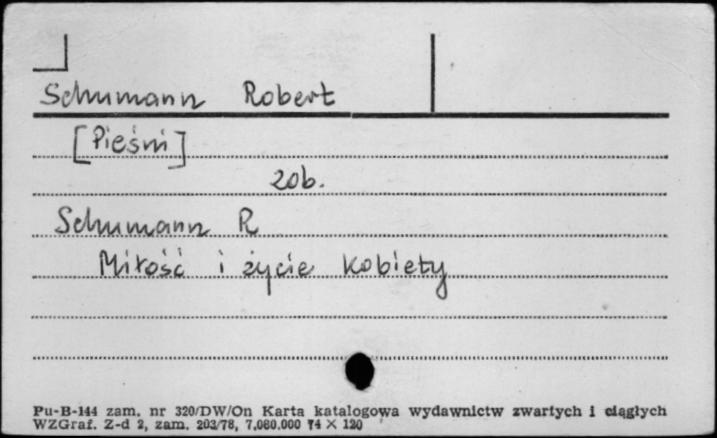 Schumann Robert
[Pieśni]
zob.
Schumann R
Miłość i życie kobiety
Pu-B-144 zam. nr 320/DW/On Karta katalogowa wydawnictw zwartych i ciągłych
WZGraf. Z-d 2, zam. 203/78, 7.080.000 74 × 120